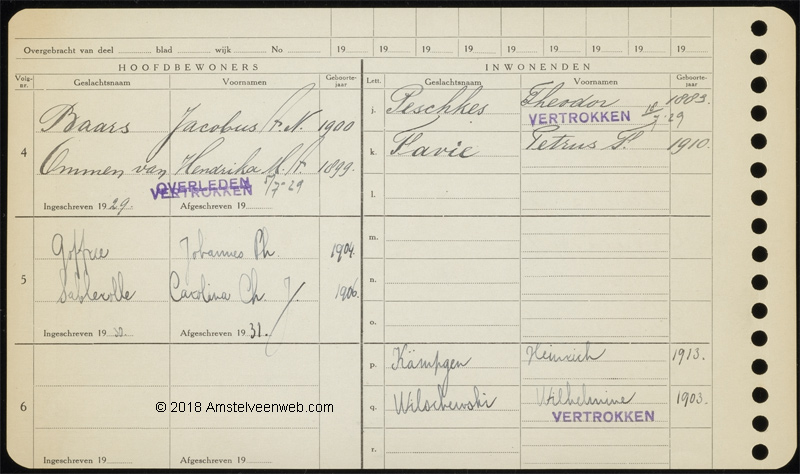 Overgebracht van deel blad wijk No 19 19 19 19 19 19 19 19 19
HOOFDBEWONERS INWONENDEN
Volg-nr. Geslachtsnaam Voornamen Geboorte-jaar Lett. Geslachtsnaam Voornamen Geboorte-jaar
4 Baars Jacobus F.N. 1900
Ommen van Hendrika M.A. 1899.
OVERLEDEN
VERTROKKEN 5/7-29
Ingeschreven 19 29. Afgeschreven 19
j. Peschkes Theodor 1883.
VERTROKKEN 18/7-29
k. Flavie Petrus F. 1910.
l.
5 Goffree Johannes Ph. 1904.
Carolina Ch. J. 1906.
Ingeschreven 19 30. Afgeschreven 19 31.
m.
n.
o.
6
© 2018 Amstelveenweb.com
Ingeschreven 19 Afgeschreven 19
p. Kämpgen Heinrich 1913.
q. Wilochewski Wilhelmine 1903.
VERTROKKEN
r.